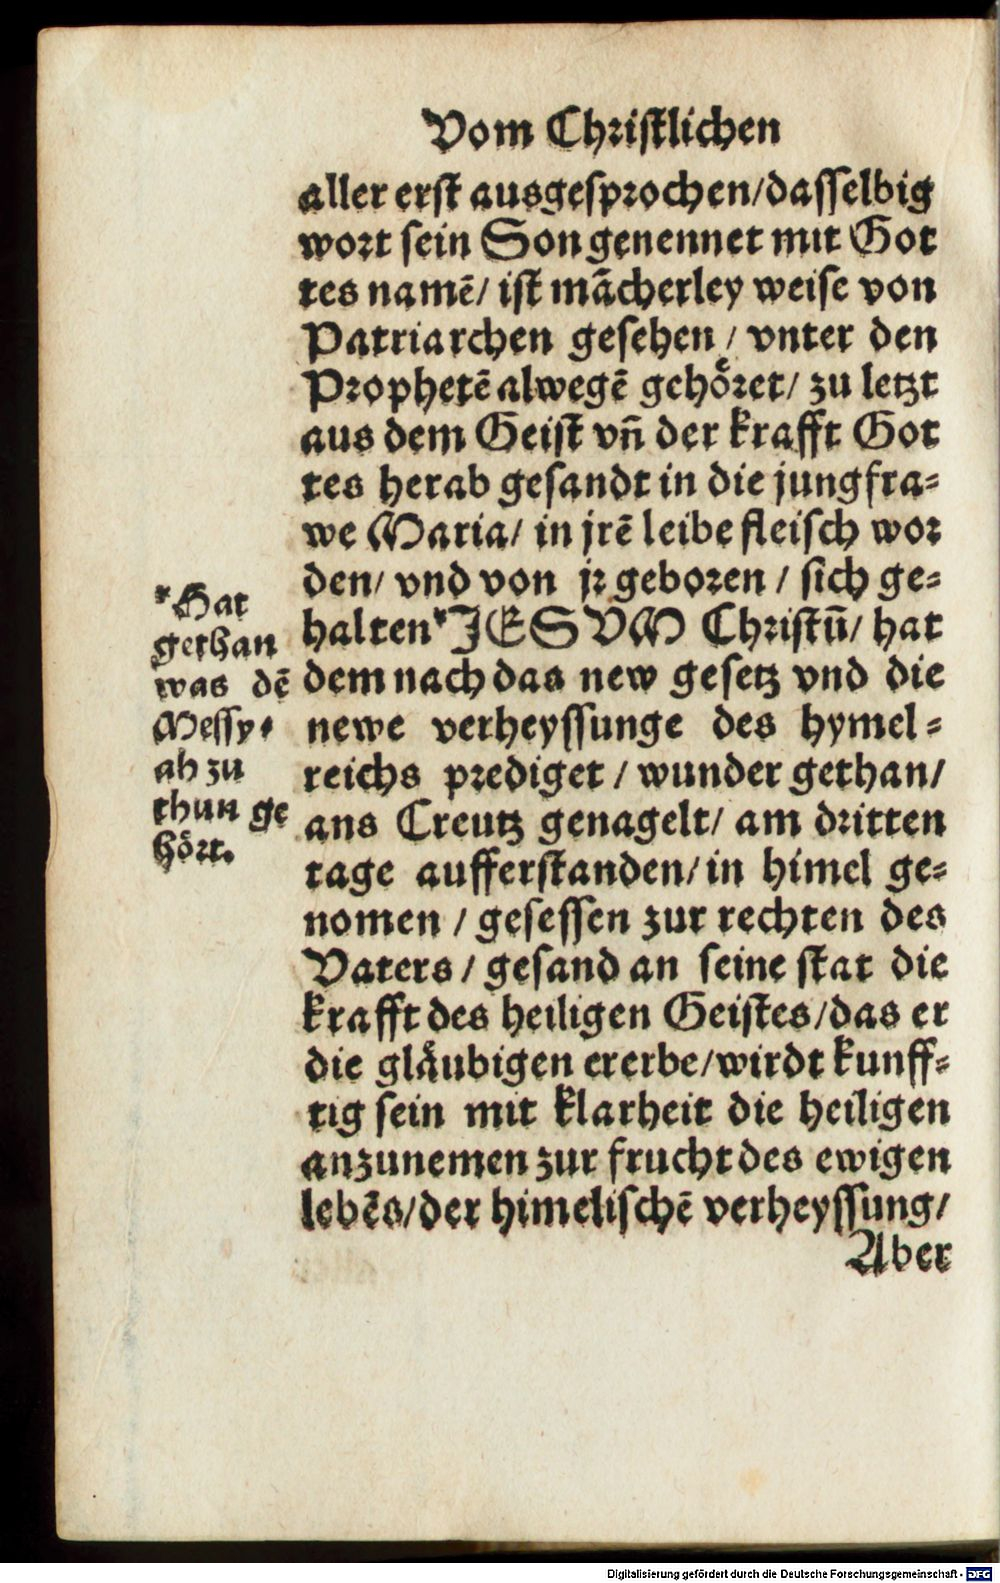 Vom Christlichen
aller erst ausgesprochen/dasselbig
wort sein Son genennet mit Got
tes namē/ ist mācherley weise von
Patriarchen gesehen / vnter den
Prophetē alwegē gehoͤret/ zu letzt
aus dem Geist vñ der krafft Got
tes herab gesandt in die jungfra=
we Maria/ in jrē leibe fleisch wor
den/ vnd von jr geboren / sich ge=
halten *JESVM Christū/ hat
dem nach das new gesetz vnd die
newe verheyssunge des hymel=
reichs prediget / wunder gethan/
ans Creutz genagelt/ am dritten
tage aufferstanden/ in himel ge=
nomen / gesessen zur rechten des
Vaters / gesand an seine stat die
krafft des heiligen Geistes/das er
die glaͤubigen ererbe/wirdt kunff=
tig sein mit klarheit die heiligen
anzunemen zur frucht des ewigen
lebēs/der himelischē verheyssung/
Aber
*Hat
gethan
was dē
Messy=
ah zu
thun ge
hoͤrt.
Digitalisierung gefördert durch die Deutsche Forschungsgemeinschaft - DFG